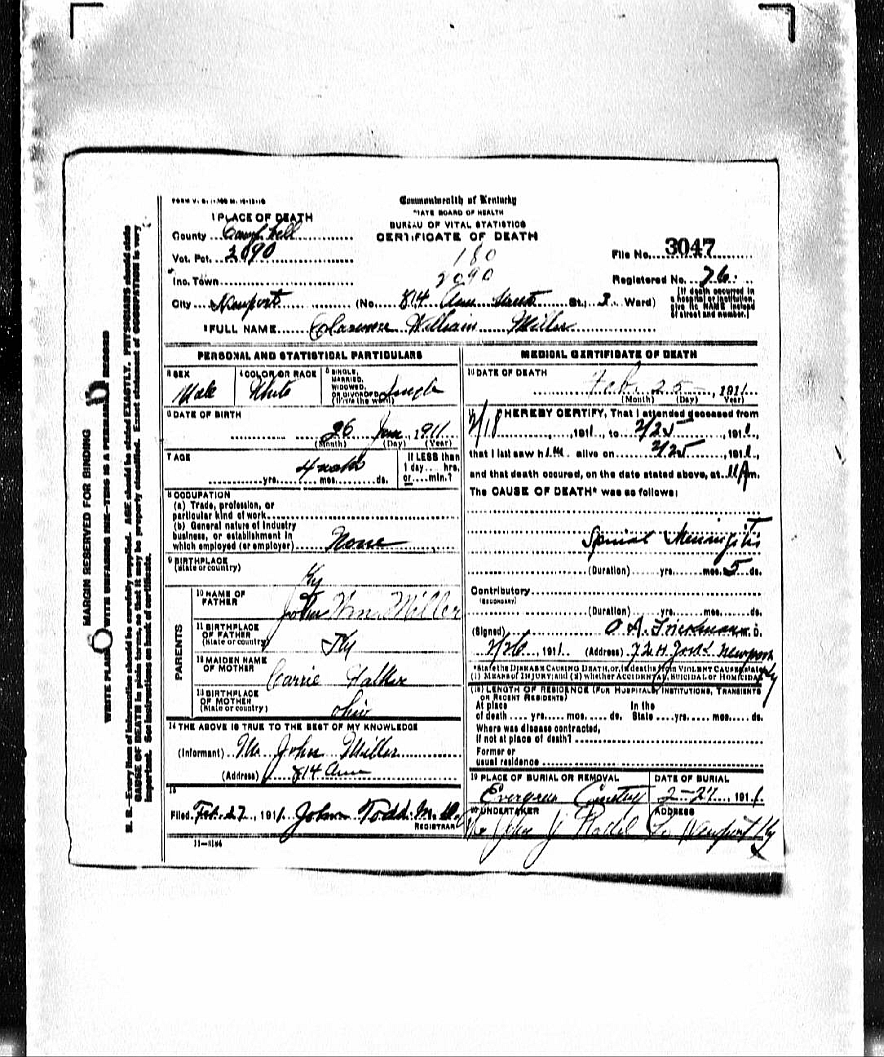 Commonwealth of Kentucky
STATE BOARD OF HEALTH
BUREAU OF VITAL STATISTICS
CERTIFICATE OF DEATH
1 PLACE OF DEATH
County Campbell
Vot. Pct. 2090
180
2090
File No. 3047
Inc. Town
Registered No. 76
City Newport (No. 814 Ann Street St.; 3 Ward)
[If death occurred in a hospital or institution, give its NAME instead of street and number.]
2 FULL NAME Clarence William Miller
PERSONAL AND STATISTICAL PARTICULARS
3 SEX
Male
4 COLOR OR RACE
White
5 SINGLE, MARRIED, WIDOWED, OR DIVORCED (Write the word) Single
6 DATE OF BIRTH
26 Jan, 1911
(Month) (Day) (Year)
7 AGE
4 wks
yrs. mos. ds.
If LESS than 1 day... hrs. or... min.?
8 OCCUPATION
(a) Trade, profession, or particular kind of work
(b) General nature of industry business, or establishment in which employed (or employer) None
9 BIRTHPLACE
(State or country) Ky
PARENTS
10 NAME OF FATHER John Wm Miller
11 BIRTHPLACE OF FATHER (State or country) Ky
12 MAIDEN NAME OF MOTHER Carrie
13 BIRTHPLACE OF MOTHER (State or country) Ohio
14 THE ABOVE IS TRUE TO THE BEST OF MY KNOWLEDGE
(Informant) Mr John Miller
(Address) 814 Ann
15
Filed Feb. 27, 1911 John Todd M.D.
REGISTRAR
11-3184
MEDICAL CERTIFICATE OF DEATH
16 DATE OF DEATH
Feb. 25, 1911
(Month) (Day) (Year)
17 I HEREBY CERTIFY, That I attended deceased from
2/18, 1911, to 2/25, 1911,
that I last saw him alive on 2/25, 1911,
and that death occured, on the date stated above, at 11 A m.
The CAUSE OF DEATH* was as follows:
Spinal Meningitis
(Duration) yrs. mos. 5 ds.
Contributory
(SECONDARY)
(Duration) yrs. mos. ds.
(Signed) M. D.
2/26, 1911. (Address) Newport Ky
*State the DISEASE CAUSING DEATH, or, in deaths from VIOLENT CAUSES, state (1) MEANS OF INJURY; and (2) whether ACCIDENTAL, SUICIDAL or HOMICIDAL
(18) LENGTH OF RESIDENCE (FOR HOSPITALS, INSTITUTIONS, TRANSIENTS OR RECENT RESIDENTS)
At place of death yrs. mos. ds. In the State yrs. mos. ds.
Where was disease contracted, if not at place of death?
Former or usual residence
19 PLACE OF BURIAL OR REMOVAL
Evergreen Cemetery
DATE OF BURIAL
2-27, 1911.
20 UNDERTAKER
John J
ADDRESS
Newport Ky
MARGIN RESERVED FOR BINDING
WRITE PLAINLY WITH UNFADING INK—THIS IS A PERMANENT RECORD
N. B.—Every item of information should be carefully supplied. AGE should be stated EXACTLY. PHYSICIANS should state
CAUSE OF DEATH in plain terms, so that it may be properly classified. Exact statement of OCCUPATION is very
important. See instructions on back of certificate.